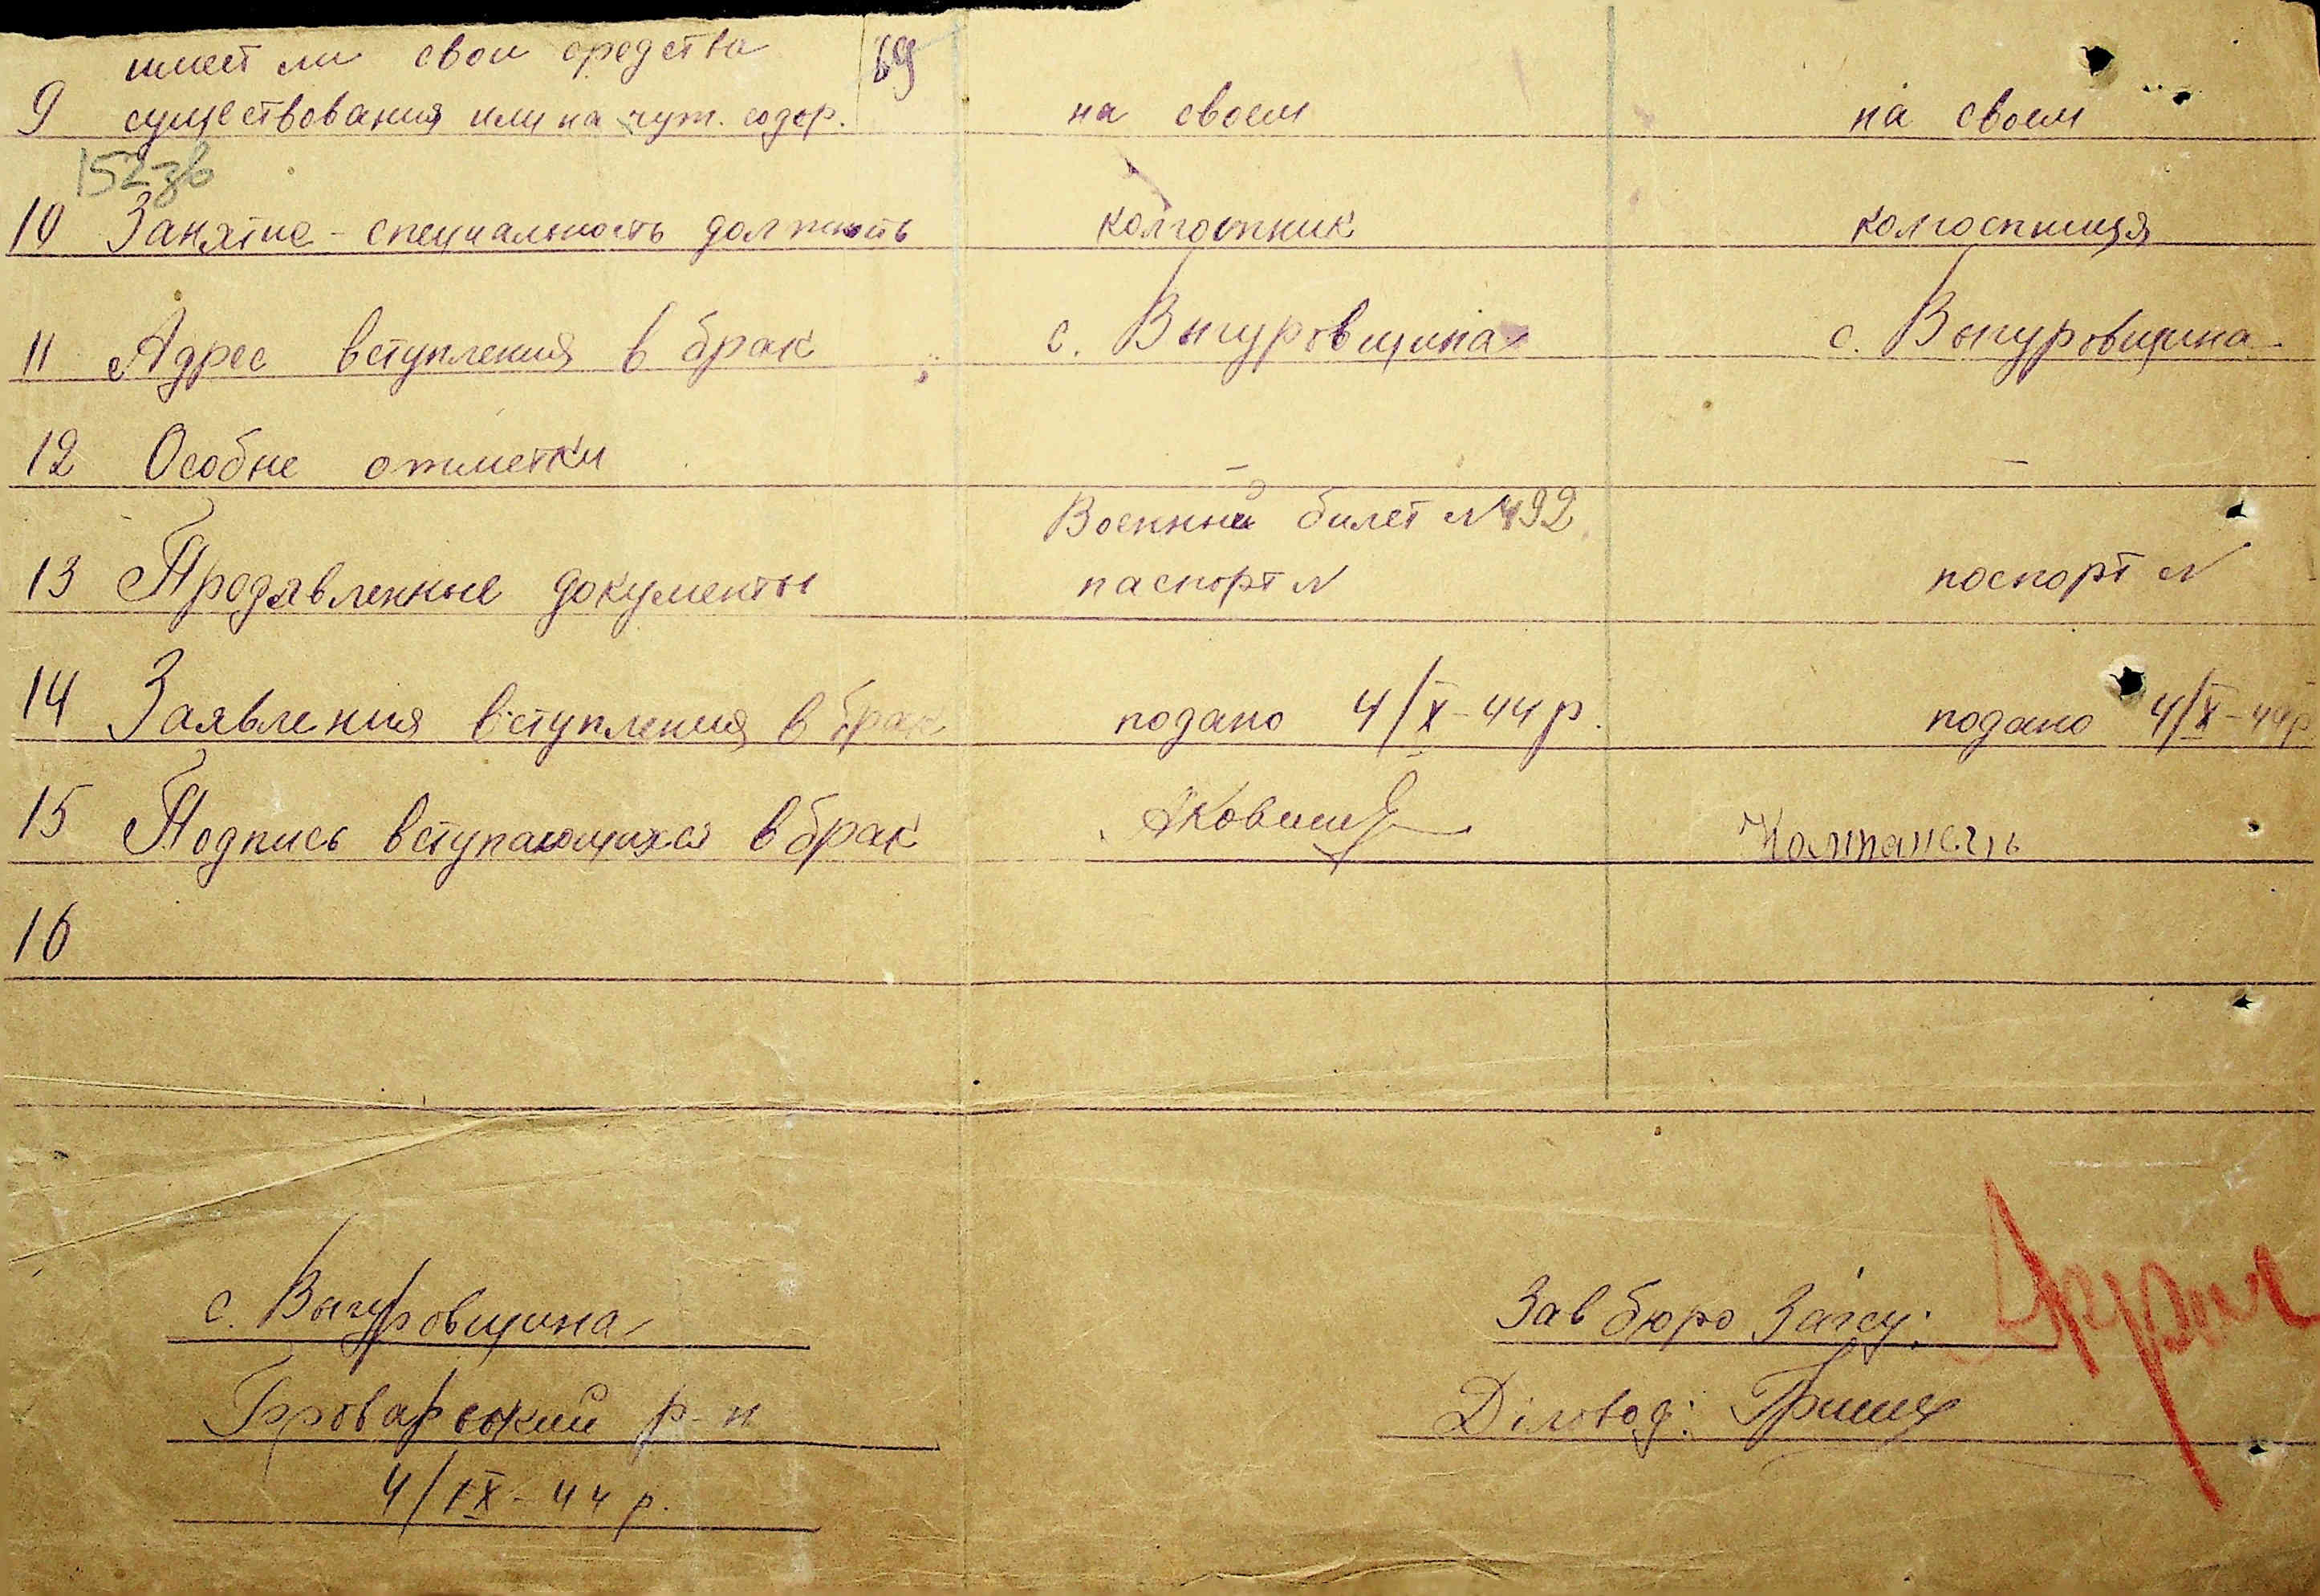 имеет ли свои средства 69
9 существования или на чуж. содер. на своем на своем
152зв
10 Занятие - специальность должность колгоспник колгоспниця
11 Адрес вступления в брак с. Выгуровщина с. Выгуровщина
12 Особые отметки - -
Военный билет № 492
13 Предявленные документы паспорт № поспорт №
14 Заявления вступления в брак подано 4/X-44 р. подано 4/X-44 р
15 Подпись вступающихся в брак
16
с. Выгуровщина Зав бюро Загсу:
Броварский р-н Діловод: Грище
4/IX-44 р.